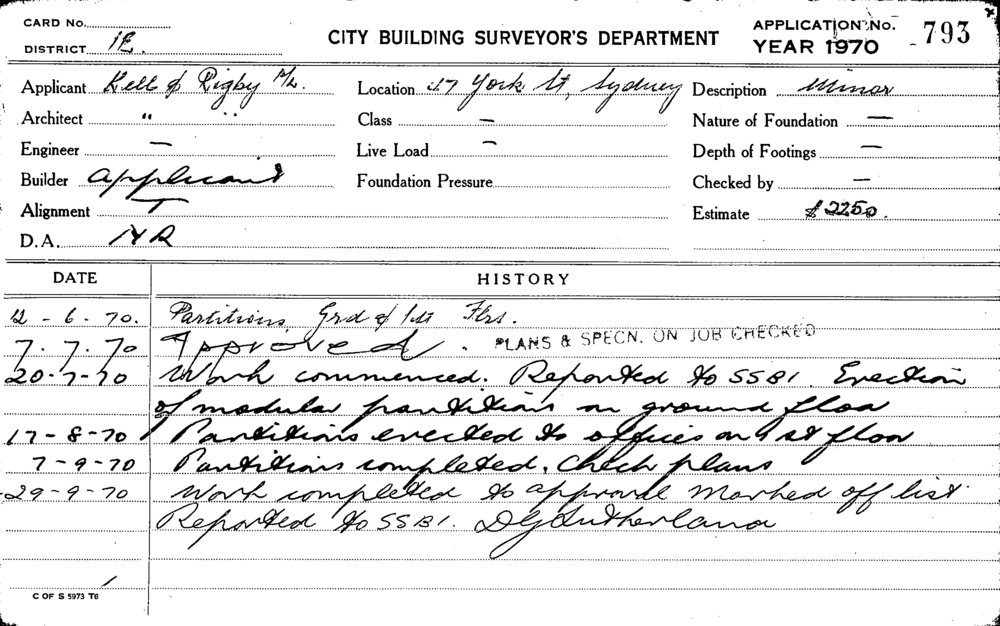 CARD No.
DISTRICT 1E.
CITY BUILDING SURVEYOR'S DEPARTMENT
APPLICATION No. 793
YEAR 1970
Applicant Kell & Rigby P/L. Location 27 York St, Sydney Description Minor
Architect " " Class — Nature of Foundation —
Engineer — Live Load — Depth of Footings —
Builder applicant Foundation Pressure Checked by —
Alignment Estimate $2250.
D.A. NR
DATE HISTORY
12 - 6 - 70. Partitions, Grd & 1st Flrs.
7. 7. 70 Approved. PLANS & SPECN. ON JOB CHECKED
20-7-70 Work commenced. Reported to SSB1. Erection
of modular partitions on ground floor
17-8-70 Partitions erected to offices on 1st floor
7-9-70 Partitions completed. Check plans
29-9-70 Work completed to approval marked off list.
Reported to SSB1. DG Sutherland
C OF S 5973 T6